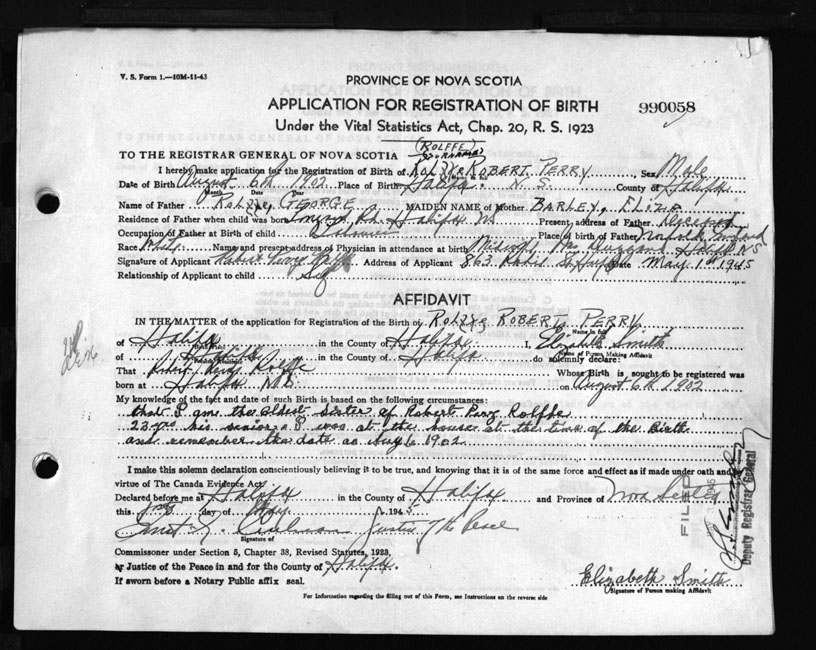 V. S. Form 1.—10M-11-43
PROVINCE OF NOVA SCOTIA
APPLICATION FOR REGISTRATION OF BIRTH
990058
Under the Vital Statistics Act, Chap. 20, R. S. 1923
(ROLFFE)
TO THE REGISTRAR GENERAL OF NOVA SCOTIA
I hereby make application for the Registration of Birth of ROBERT PERRY Sex Male
Date of Birth August 6th 1902 Place of Birth Halifax. N. S. County of Halifax
Month Day Year
Name of Father GEORGE MAIDEN NAME of Mother BARLEY, ELIZA
Residence of Father when child was born Rd. Halifax NS Present address of Father Deceased
Occupation of Father at Birth of child Place of Birth of Father Norfolk England
Race White Name and present address of Physician in attendance at birth Midwife Halifax NS
Signature of Applicant Robert Perry Rolffe Address of Applicant 863 St Halifax Date May 1st 1945
Relationship of Applicant to child Self
AFFIDAVIT
IN THE MATTER of the application for Registration of the Birth of ROBERT PERRY
Name in full
of Halifax in the County of Halifax I, Elizabeth Smith
Name of Person Making Affidavit
of Halifax in the County of Halifax do solemnly declare:
That Robert Perry Rolffe Whose Birth is sought to be registered was
born at Halifax N.S. on August 6th 1902
My knowledge of the fact and date of such Birth is based on the following circumstances:
that I am the oldest sister of Robert Perry Rolffe
23 yrs his senior & I was at the house at the time of the Birth
and remember the date as Aug 6 1902
I make this solemn declaration conscientiously believing it to be true, and knowing that it is of the same force and effect as if made under oath and
virtue of The Canada Evidence Act.
Declared before me at Halifax in the County of Halifax and Province of Nova Scotia
this 1st day of May 1945
Justice of the Peace
Signature of
Commissioner under Section 5, Chapter 38, Revised Statutes, 1923,
or Justice of the Peace in and for the County of Halifax.
If sworn before a Notary Public affix seal.
Elizabeth Smith
Signature of Person making Affidavit
For Information regarding the filling out of this Form, see Instructions on the reverse side
FILED
Deputy Registrar General